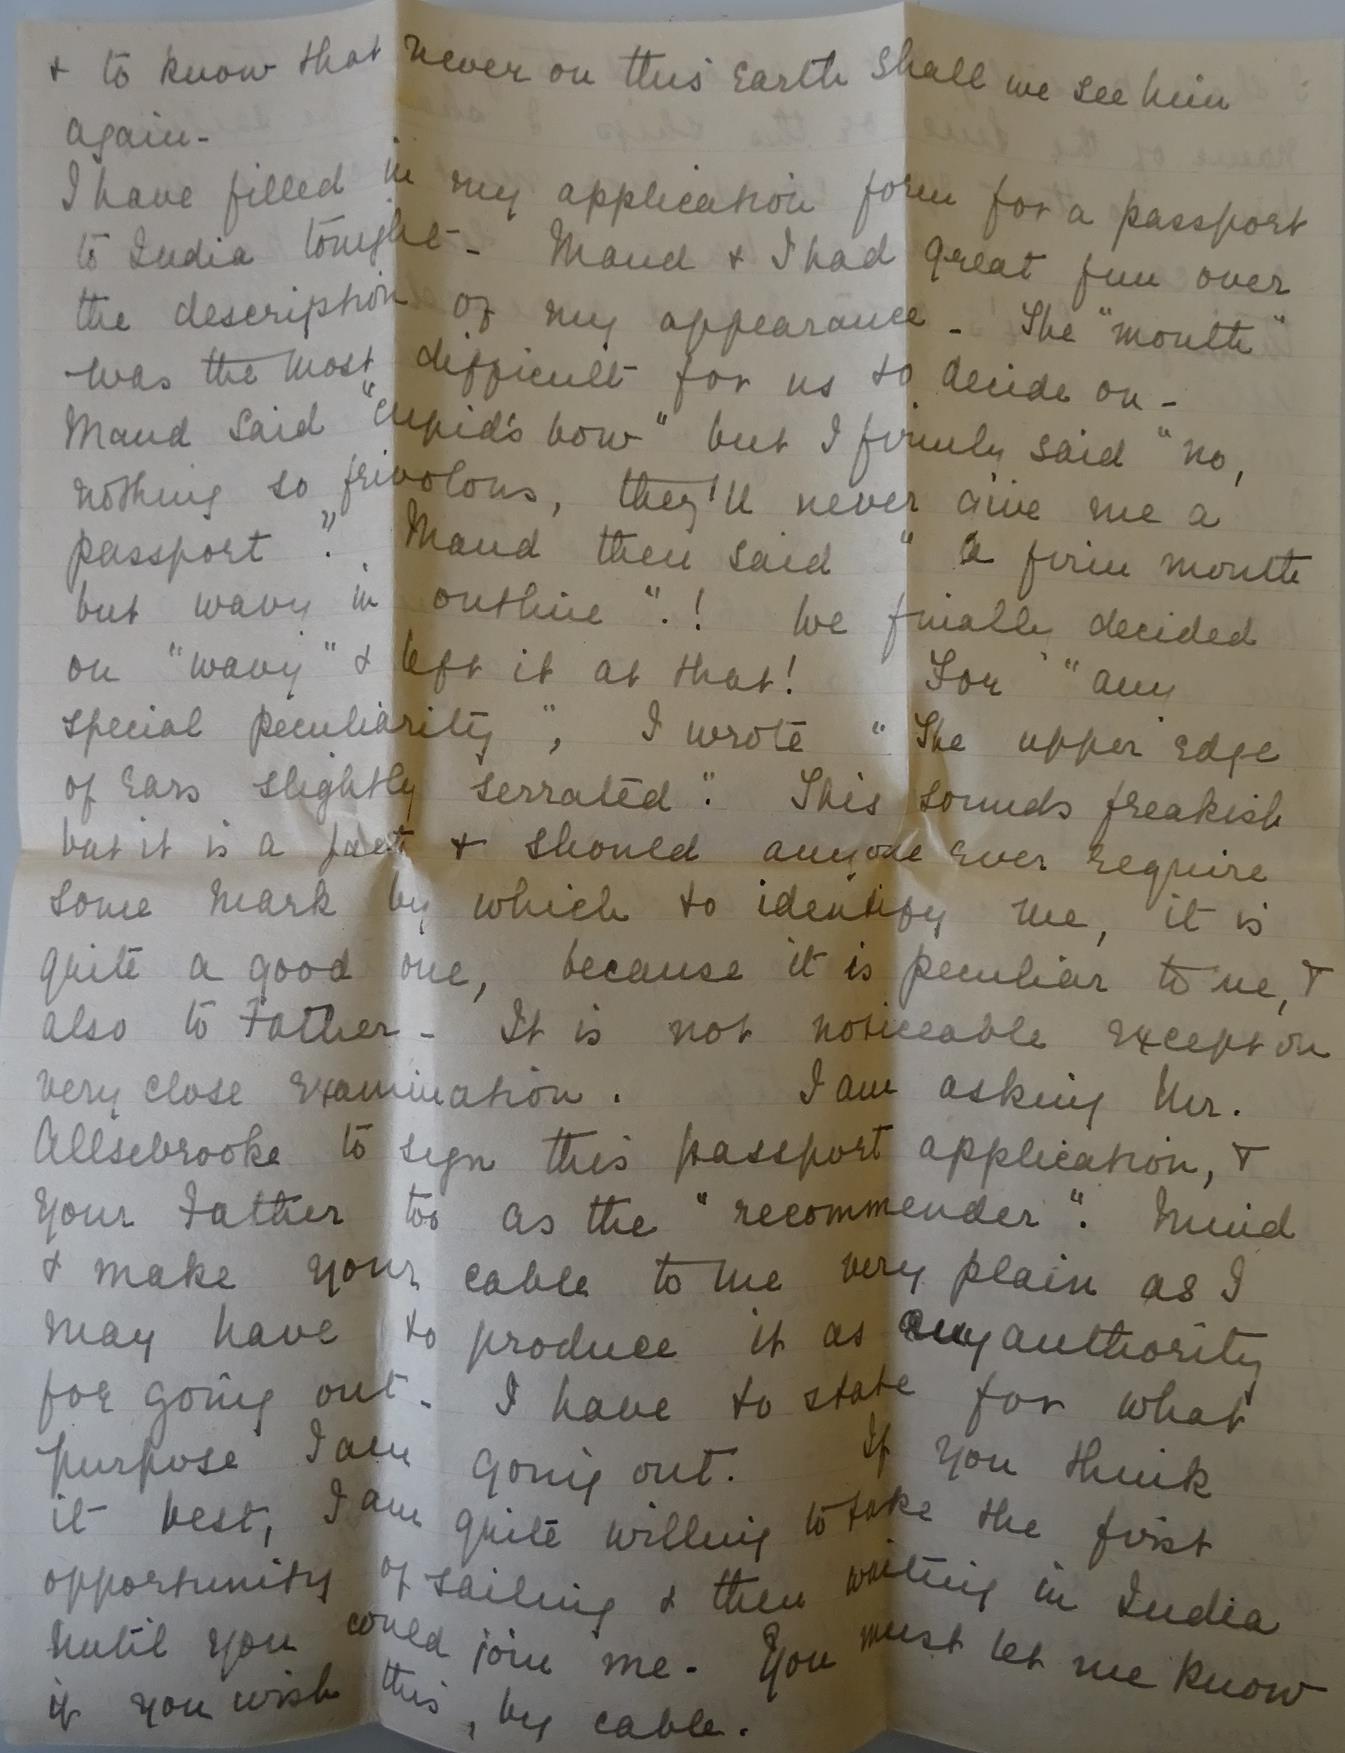 & to know that never on this Earth shall we see him
again -
I have filled in my application form for a passport
to India tonight - Maud & I had great fun over
the description of my appearance - The "mouth"
was the most difficult for us to decide on -
Maud said "cupid's bow" but I firmly said "no,
nothing so frivolous, they'll never give me a
passport". Maud then said "a firm mouth
but wavy in outline".! We finally decided
on "wavy" & left it at that! For "any
special peculiarity", I wrote "The upper edge
of Ears slightly serrated". This sounds freakish
but it is a fact & should anyone ever require
some mark by which to identify me, it is
quite a good one, because it is peculiar to me, &
also to Father - It is not noticeable except on
very close examination. I am asking Mr.
Allsebrooke to sign this passport application, &
your Father too as the "recommender". Mind
& make your cable to me very plain as I
may have to produce it as my authority
for going out - I have to state for what
purpose I am going out. If you think
it best, I am quite willing to take the first
opportunity of sailing & then waiting in India
until you could join me - You must let me know
if you wish this, by cable.